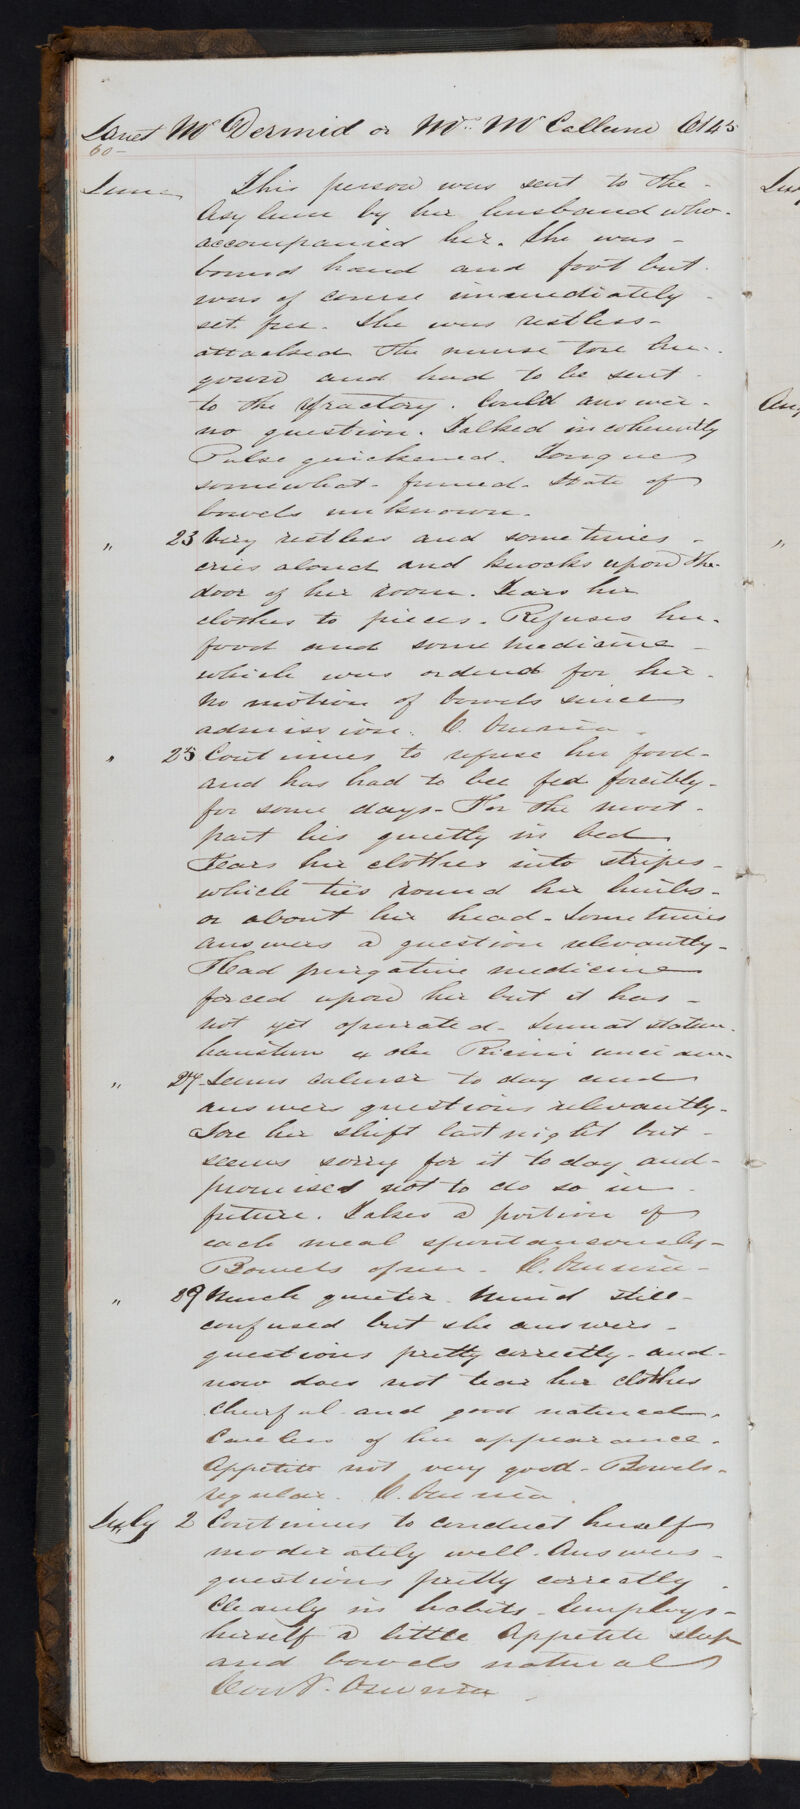 Janet McDermid or Mrs. McCallum C145
60-
June This person was sent to the
Asylum by her husband who
accompanied her. She was
bound hand and foot but
was of course immediately
set free. She was restless
attacked the nurse tore her
gown and had to be sent
to the refractory. Could answer
no question. Talked incoherently
Pulse quickened. Tongue
somewhat furred. State of
bowels unknown.
" 23 Very restless and sometimes
cries aloud and knocks upon the
door of her room. Tears her
clothes to pieces. Refuses her
food and some medicine
which was ordered for her
No motion of bowels since
admission. C.
" 25 Continues to refuse her food
and has had to bee fed forcibly
for some days - For the most
part lies quietly in bed
Tears her clothes into stripes
which ties round her limbs
or about her head - Sometimes
answers a question relevantly
Had purgative medicine
forced upon her but it has
not yet operated - Sumat statim
haustum Ricini
" 27 Seems calmer to day and
answers questions relevantly.
Tore her shift last night but
seems sorry for it today and
promised not to do so in
future. Takes a portion of
each meal spontaneously
Bowels open - C.
" 29 Much quieter. Mind still
confused but she answers
questions pretty correctly - and
now does not tear her clothes
Cheerful and good natured.
Careless of her appearance.
Appetite not very good - Bowels
regular. C.
July 2 Continues to conduct herself
moderately well. Answers
questions pretty correctly
Cleanly in habits - Employs
herself a little Appetite sleep
and bowels natural
Cont.